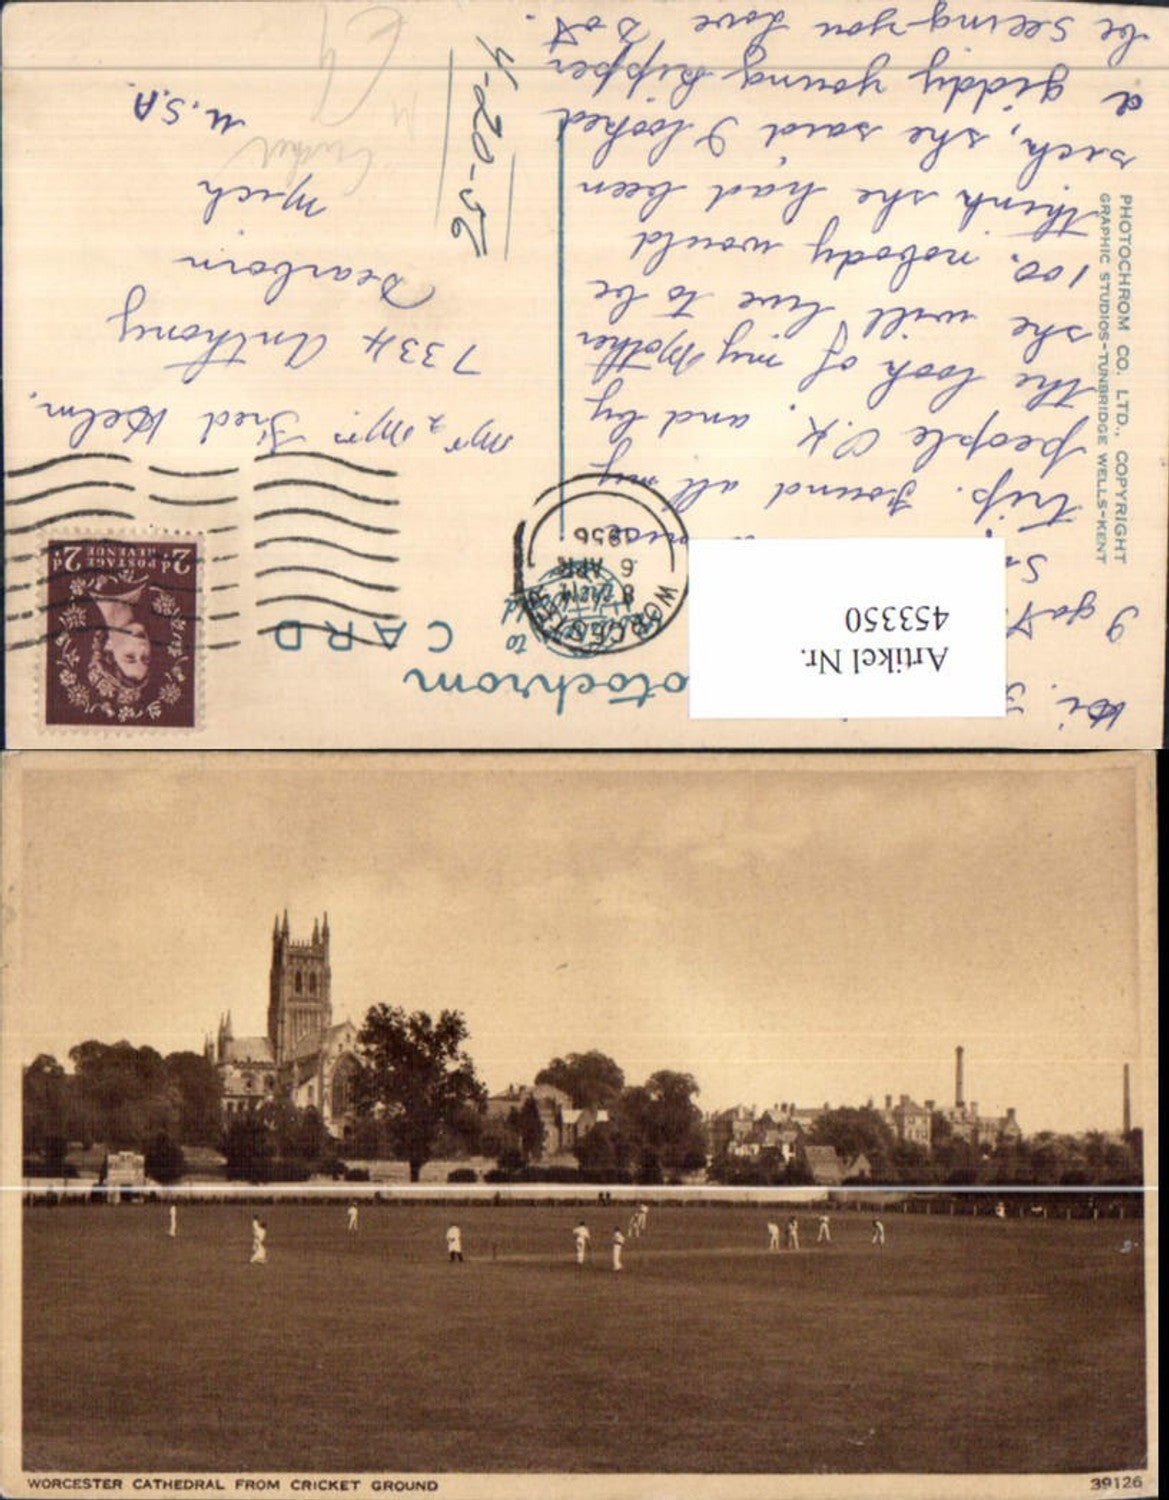 Photochrom
CARD
I got
trip. Found all my
people O.K. and by
the look of my Mother
she will live to be
100. nobody would
think she had been
sick, she said I looked
a giddy young kipper
be seeing you love Dot.
PHOTOCHROM CO. LTD., COPYRIGHT
GRAPHIC STUDIOS-TUNBRIDGE WELLS-KENT
Artikel Nr.
453350
WORCESTER
6
APR
1956
2d POSTAGE REVENUE 2d
Mr & Mrs Fred Helm.
7334 Anthony
Dearborn
Mich
U.S.A.
4-20-56
Cricket
WORCESTER CATHEDRAL FROM CRICKET GROUND
39126